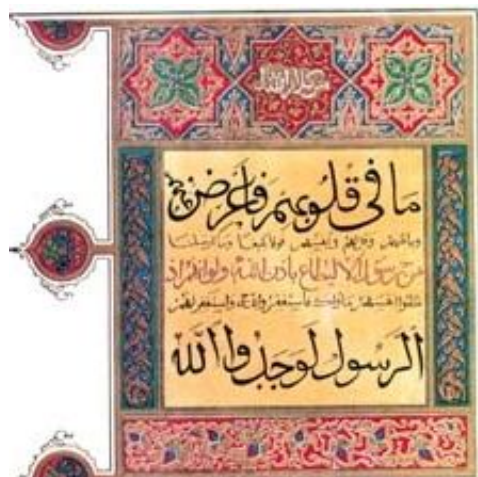 ما فى قلوبهم فأعرض
قولا بليغا وما أرسلنا
من رسول إلا ليطاع بإذن الله ولو أنهم إذ
ظلموا أنفسهم جاؤك فاستغفروا الله واستغفر لهم
الرسول لوجدوا الله